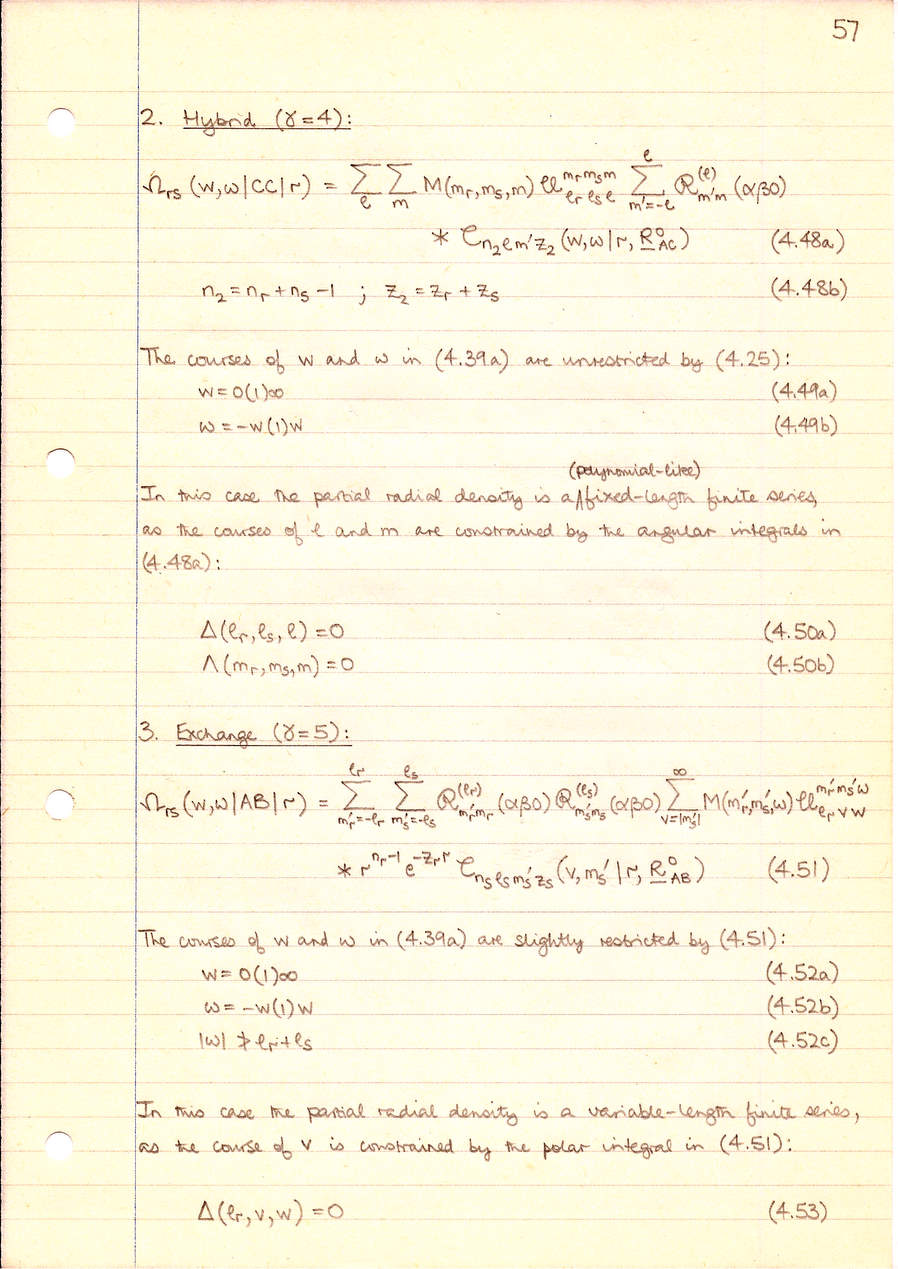 57
2. Hybrid (γ=4):
Ω_rs (w,ω|CC|r) = Σ_ℓ Σ_m M(m_r,m_s,m) 𝒰^{m_r m_s m}_{ℓ_r ℓ_s ℓ} Σ_{m'=-ℓ}^{ℓ} ℛ^{(ℓ)}_{m'm} (αβ0)
* 𝒞_{n₂ℓm'z₂} (w,ω|r, R°_AC) (4.48a)
n₂ = n_r + n_s - 1 ; z₂ = z_r + z_s (4.48b)
The courses of w and ω in (4.39a) are unrestricted by (4.25):
w = 0(1)∞ (4.49a)
ω = -w(1)w (4.49b)
(polynomial-like)
In this case the partial radial density is a ∧ fixed-length finite series,
as the courses of ℓ and m are constrained by the angular integrals in
(4.48a):
Δ(ℓ_r, ℓ_s, ℓ) = 0 (4.50a)
Λ(m_r, m_s, m) = 0 (4.50b)
3. Exchange (γ=5):
Ω_rs (w,ω|AB|r) = Σ_{m'_r=-ℓ_r}^{ℓ_r} Σ_{m'_s=-ℓ_s}^{ℓ_s} ℛ^{(ℓ_r)}_{m'_r m_r} (αβ0) ℛ^{(ℓ_s)}_{m'_s m_s} (αβ0) Σ_{v=|m'_s|}^{∞} M(m'_r,m'_s,ω) 𝒰^{m'_r m'_s ω}_{ℓ_r v w}
* r^{n_r-1} e^{-z_r r} 𝒞_{n_s ℓ_s m'_s z_s} (v, m'_s|r, R°_AB) (4.51)
The courses of w and ω in (4.39a) are slightly restricted by (4.51):
w = 0(1)∞ (4.52a)
ω = -w(1)w (4.52b)
|ω| ≯ ℓ_r + ℓ_s (4.52c)
In this case the partial radial density is a variable-length finite series,
as the course of v is constrained by the polar integral in (4.51):
Δ(ℓ_r, v, w) = 0 (4.53)